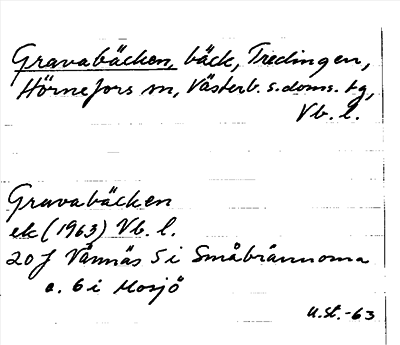 Gravabäcken, bäck, Tredingen,
Hörnefors sn, Västerb. s. doms. tg,
Vb. l.
Gravabäcken
ek (1963) Vb. l.
20 J Vännäs 5 i Småbrännorna
o. 6 i Mosjö
U.St. -63